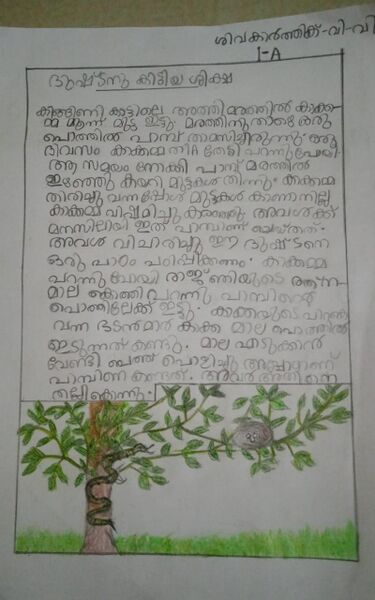 ശിവകാർത്തിക്-വി-വി
I-A
ദുഷ്ടനു കിട്ടിയ ശിക്ഷ
കിങ്ങിണി കാട്ടിലെ അത്തിമരത്തിൽ കാക്ക
മ്മ മൂന്ന് മുട്ട ഇട്ടു. മരത്തിനു താഴെ ഒരു
പൊത്തിൽ പാമ്പ് താമസിച്ചിരുന്നു. ഒരു
ദിവസം കാക്കമ്മ തീറ്റ തേടി പറന്നുപോയി.
ആ സമയം നോക്കി പാമ്പ് മരത്തിൽ
ഇഴഞ്ഞു കയറി മുട്ടകൾ തിന്നു. കാക്കമ്മ
തിരിച്ചു വന്നപ്പോൾ മുട്ടകൾ കാണാനില്ല
കാക്കമ്മ വിഷമിച്ചു കരഞ്ഞു. അവൾക്ക്
മനസിലായി ഇത് പാമ്പാണ് ചെയ്തത്.
അവൾ വിചാരിച്ചു ഈ ദുഷ്ടനെ
ഒരു പാഠം പഠിപ്പിക്കണം. കാക്കമ്മ
പറന്നു പോയി രാജ്ഞിയുടെ രത്ന
മാല കൊത്തി പറന്നു പാമ്പിന്റെ
പൊത്തിലേക്ക് ഇട്ടു. കാക്കയുടെ പിറകെ
വന്ന ഭടൻമാർ കാക്ക മാല പൊത്തിൽ
ഇടുന്നത് കണ്ടു. മാല എടുക്കാൻ
വേണ്ടി പൊളിച്ചു അപ്പോഴാണ്
പാമ്പിനെ കണ്ടത്. അവർ അതിനെ
തല്ലികൊന്നു.